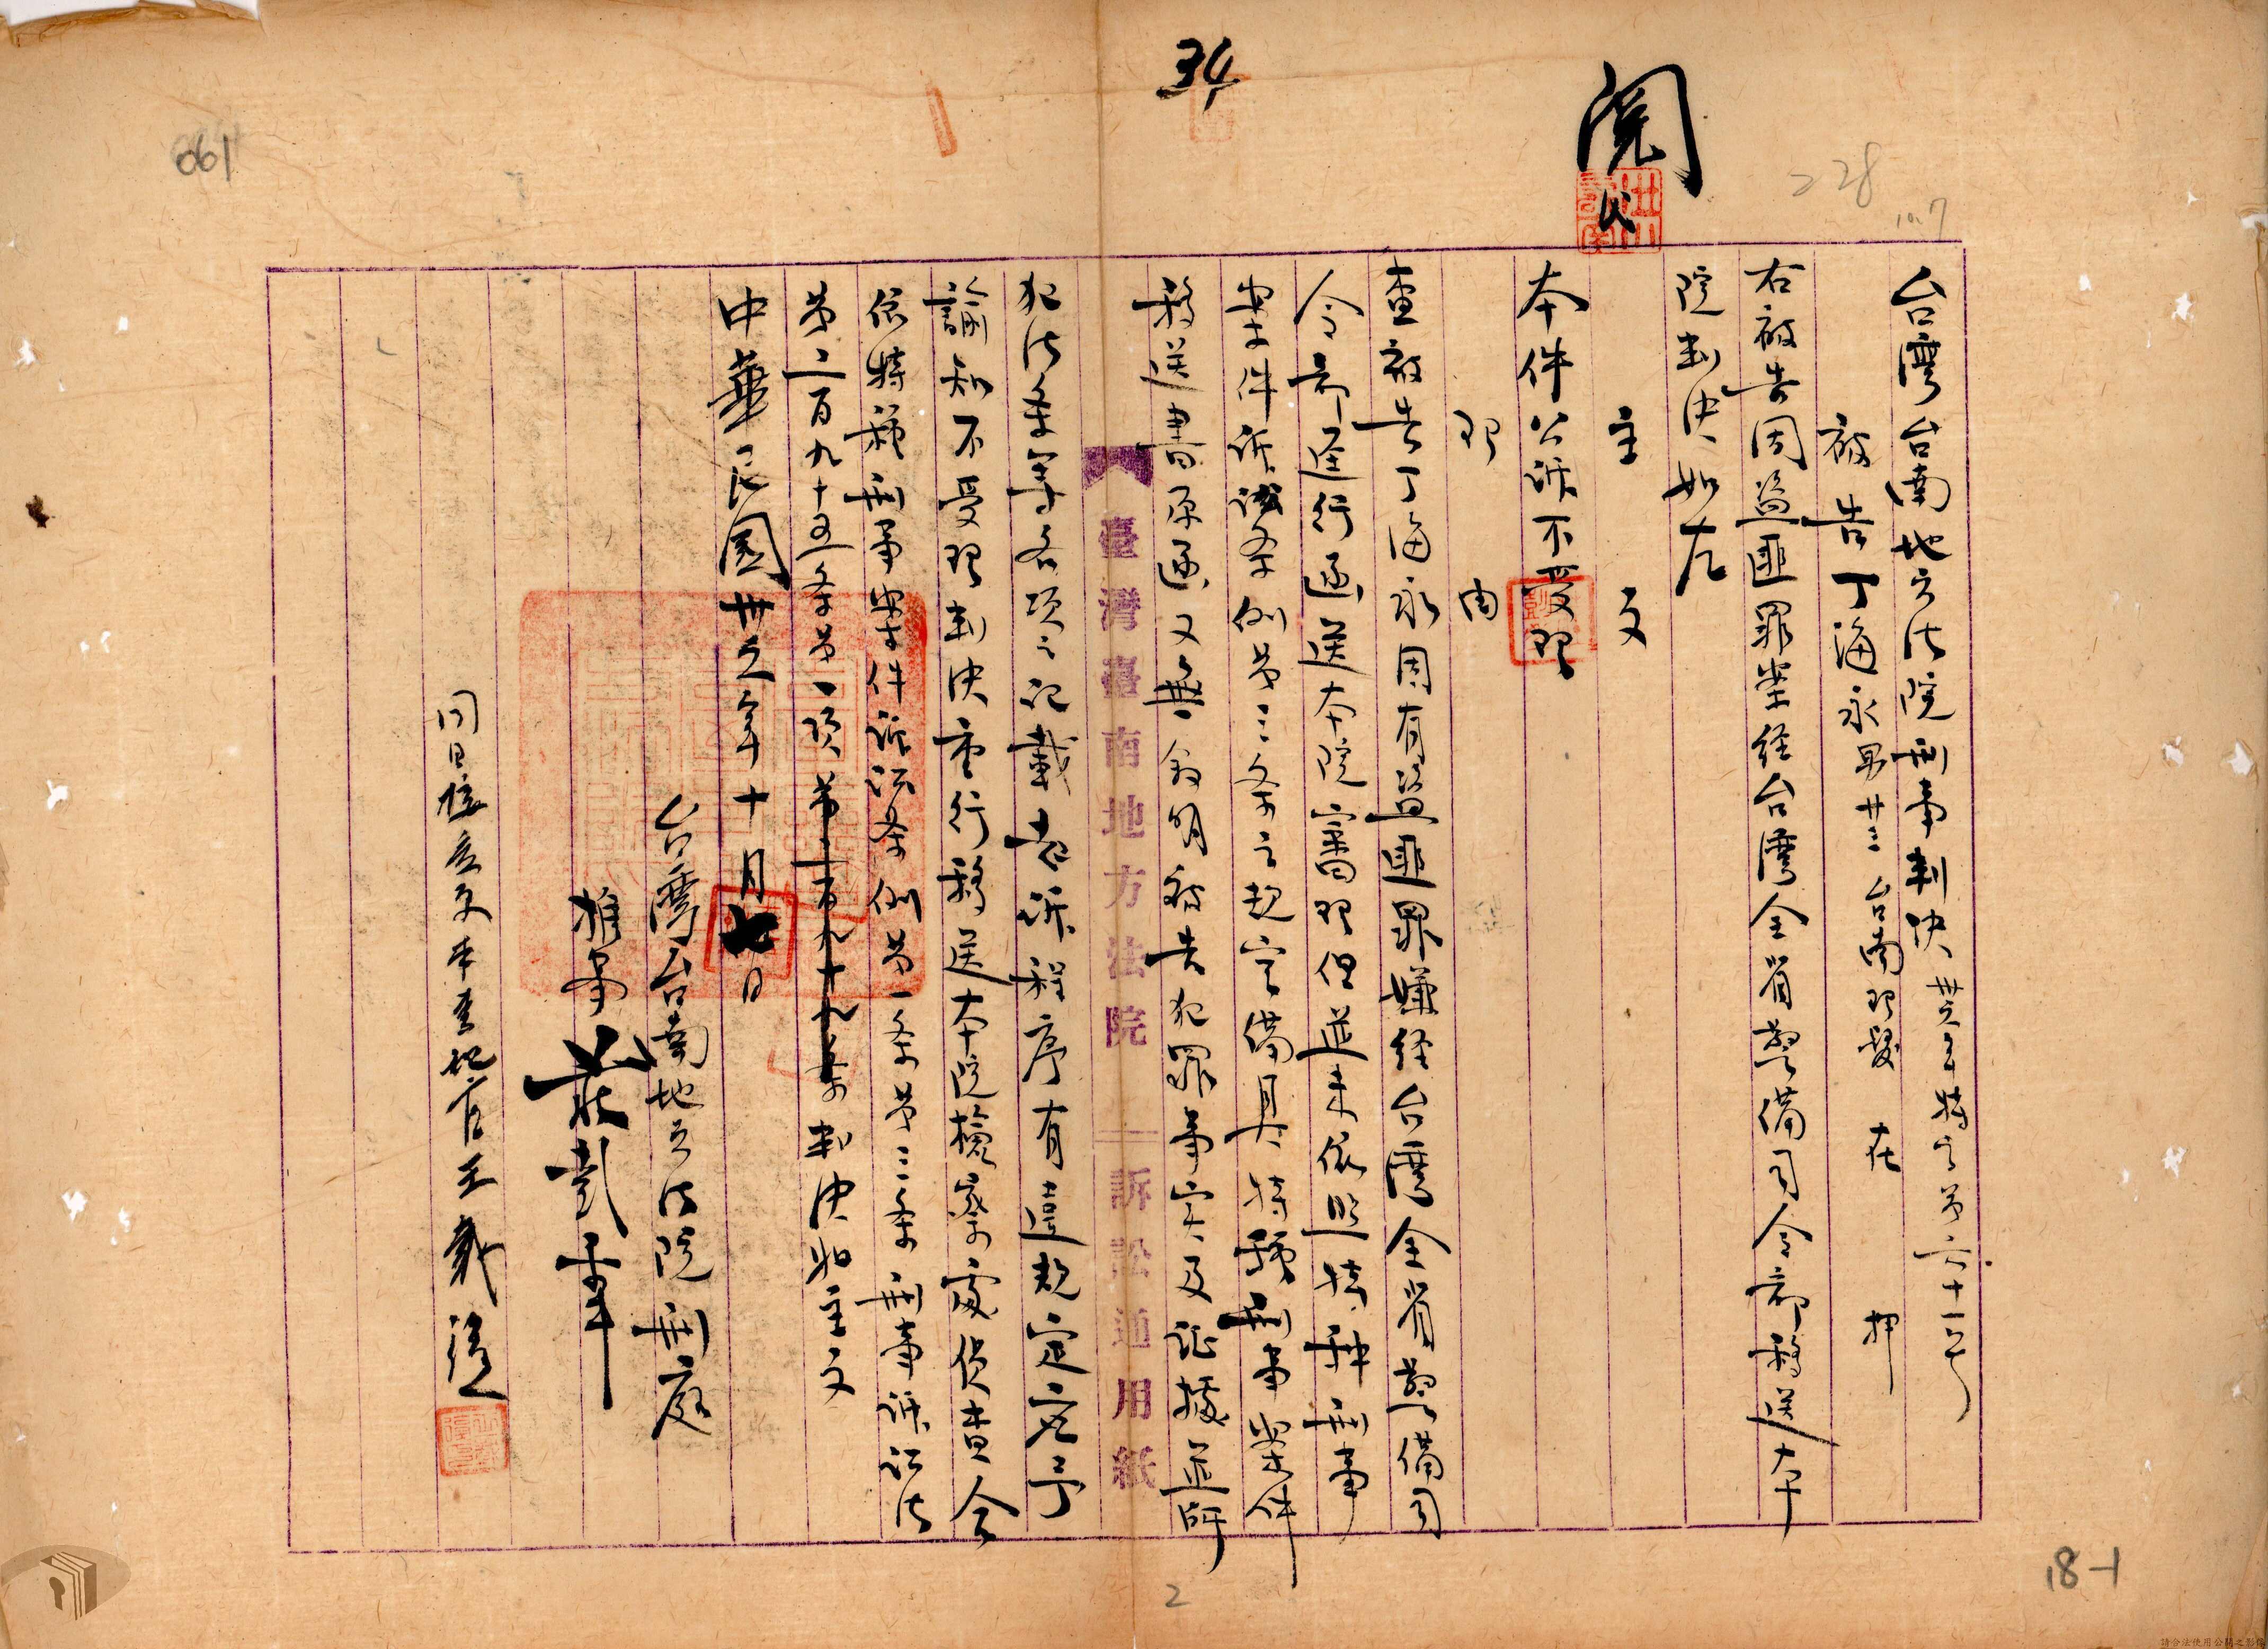 34
閱
228
10.7
061
台湾台南地方法院刑事判決 卅五年特字第六十一号
被告丁海永 男 卅三 台南 理髮 在押
右被告因盜匪罪案経台湾全省警備司令部移送本
院判決如左
主文
本件公訴不受理
理由
查被告丁海永因有盜匪罪嫌経台湾全省警備司
令部逕行函送本院審理但並未依照特种刑事
案件訴訟条例第三条之規定備具特種刑事案件
移送書原函又無敘明被告犯罪事实及证據並所
臺灣臺南地方法院 訴訟通用紙
犯法条等各項之記載起訴程序有違規定应予
諭知不受理判決重行移送本院檢察處偵查合
依特種刑事案件訴訟条例第一条第三条刑事訴訟法
第二百九十五条第一項第二百九十九条判決如主文
中華民國卅五年十月七日
台湾台南地方法院刑庭
推事 莊
同日
書記官王
2
18-1
請合法使用公開之影像